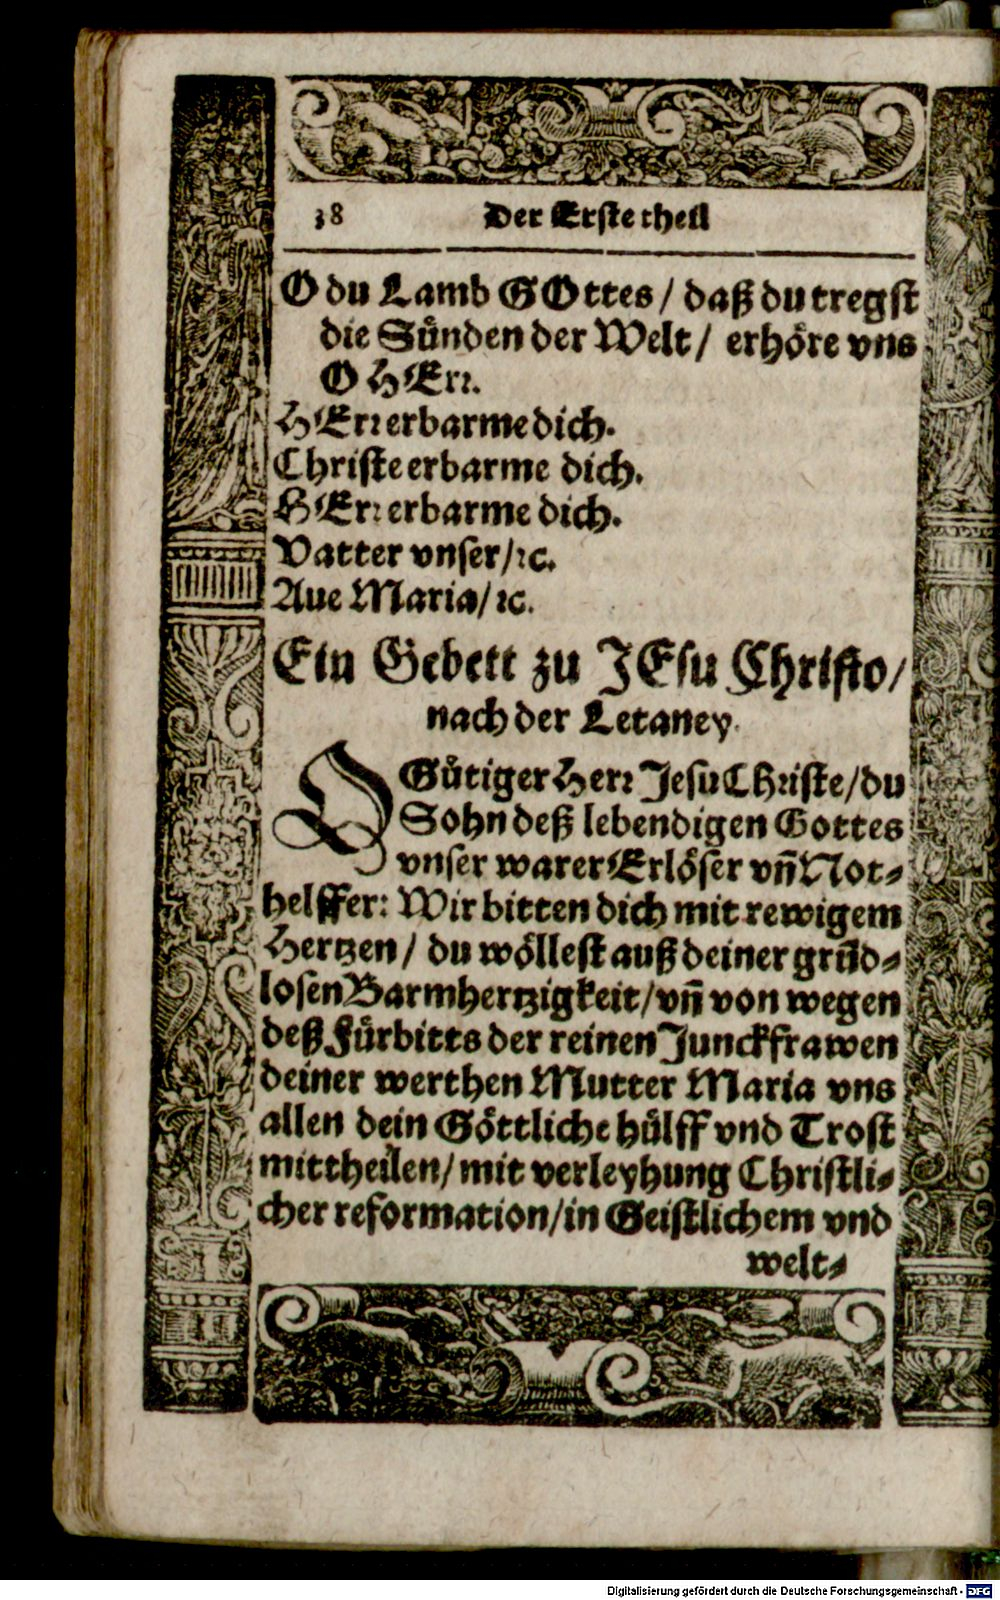 38 Der Erste theil
O du Lamb GOttes / daß du tregst
die Sünden der Welt / erhöre vns
O HErr.
HErr erbarme dich.
Christe erbarme dich.
HErr erbarme dich.
Vatter vnser/ꝛc.
Aue Maria/ꝛc.
Ein Gebett zu JEsu Christo/
nach der Letaney.
O Gütiger Herr Jesu Christe/du
Sohn deß lebendigen Gottes
vnser warer Erlöser vn̄ Not⸗
helffer: Wir bitten dich mit rewigem
Hertzen / du wöllest auß deiner grūd⸗
losen Barmhertzigkeit/vn̄ von wegen
deß Fürbitts der reinen Junckfrawen
deiner werthen Mutter Maria vns
allen dein Göttliche hülff vnd Trost
mittheilen/mit verleyhung Christli⸗
cher reformation/in Geistlichem vnd
welt⸗
Digitalisierung gefördert durch die Deutsche Forschungsgemeinschaft - DFG